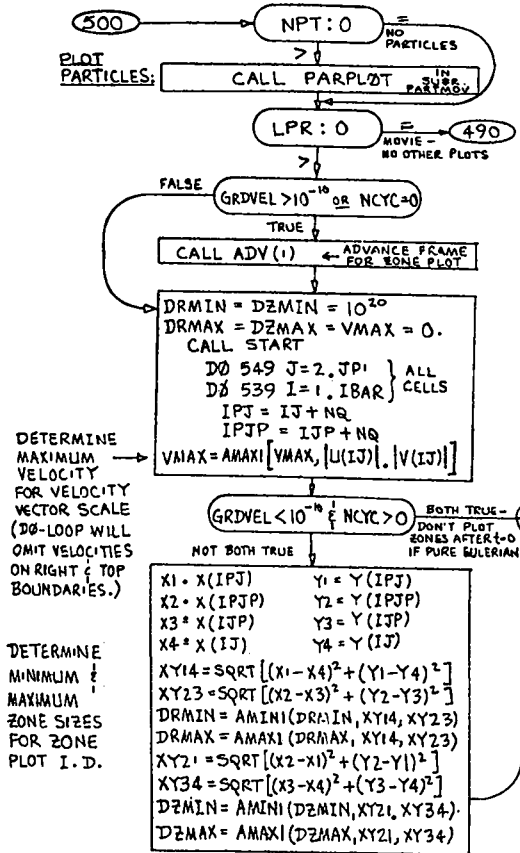 500
NPT: 0
=
NO
PARTICLES
>
PLOT
PARTICLES:
CALL PARPLØT
IN
SUBR.
PARTMOV
LPR: 0
=
490
MOVIE –
NO OTHER PLOTS
>
FALSE
GRDVEL >10⁻¹⁰ OR NCYC=0
TRUE
CALL ADV(1)
← ADVANCE FRAME
FOR ZONE PLOT
DRMIN = DZMIN = 10²⁰
DRMAX = DZMAX = VMAX = 0.
CALL START
DØ 549 J=2, JP1
DØ 539 I=1, IBAR
} ALL
CELLS
IPJ = IJ + NQ
IPJP = IJP + NQ
VMAX = AMAX1[VMAX, |U(IJ)|, |V(IJ)|]
DETERMINE
MAXIMUM
VELOCITY
FOR VELOCITY
VECTOR SCALE
(DØ-LOOP WILL
OMIT VELOCITIES
ON RIGHT & TOP
BOUNDARIES.)
GRDVEL <10⁻¹⁰ & NCYC >0
BOTH TRUE –
DON'T PLOT
ZONES AFTER t=0
IF PURE EULERIAN
NOT BOTH TRUE
X1 = X(IPJ) Y1 = Y(IPJ)
X2 = X(IPJP) Y2 = Y(IPJP)
X3 = X(IJP) Y3 = Y(IJP)
X4 = X(IJ) Y4 = Y(IJ)
XY14 = SQRT[(X1-X4)² + (Y1-Y4)²]
XY23 = SQRT[(X2-X3)² + (Y2-Y3)²]
DRMIN = AMIN1(DRMIN, XY14, XY23)
DRMAX = AMAX1(DRMAX, XY14, XY23)
XY21 = SQRT[(X2-X1)² + (Y2-Y1)²]
XY34 = SQRT[(X3-X4)² + (Y3-Y4)²]
DZMIN = AMIN1(DZMIN, XY21, XY34)
DZMAX = AMAX1(DZMAX, XY21, XY34)
DETERMINE
MINIMUM &
MAXIMUM
ZONE SIZES
FOR ZONE
PLOT I.D.